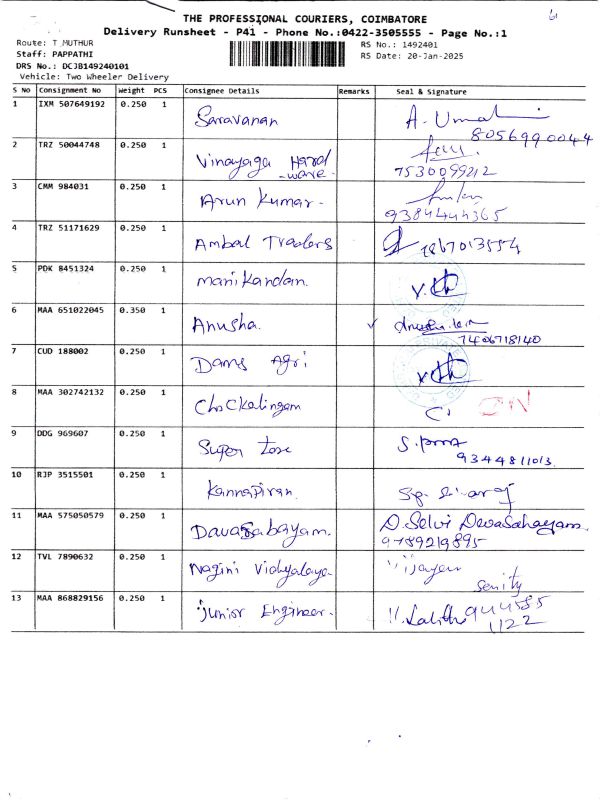 6
THE PROFESSIONAL COURIERS, COIMBATORE
Delivery Runsheet - P41 - Phone No.:0422-3505555 - Page No.:1
Route: T_MUTHUR
RS No.: 1492401
Staff: PAPPATHI
RS Date: 20-Jan-2025
DRS No.: DCJB149240101
Vehicle: Two Wheeler Delivery
S No Consignment No Weight PCS Consignee Details Remarks Seal & Signature
1 IXM 507649192 0.250 1 Saravanan A. Umah
8056990044
2 TRZ 50044748 0.250 1 Vinayaga Hard
-ware- 7530099212
3 CMM 984031 0.250 1 Arun Kumar-
9384444365
4 TRZ 51171629 0.250 1 Ambal Traders 7867013554
5 PDK 8451324 0.250 1 manikandan.
6 MAA 651022045 0.350 1 Anusha.
7406718140
7 CUD 188002 0.250 1 Dams Agri
8 MAA 302742132 0.250 1 ChoCkalingam C.
9 DDG 969607 0.250 1 Super
9344811013.
10 RJP 3515501 0.250 1 Kannapiran.
11 MAA 575050579 0.250 1 D. Selvi DevaSahayam
9789219895
12 TVL 7890632 0.250 1 Nagini Vidhyalaya Vijayan
13 MAA 868829156 0.250 1 Junior Engineer. 944585
1122